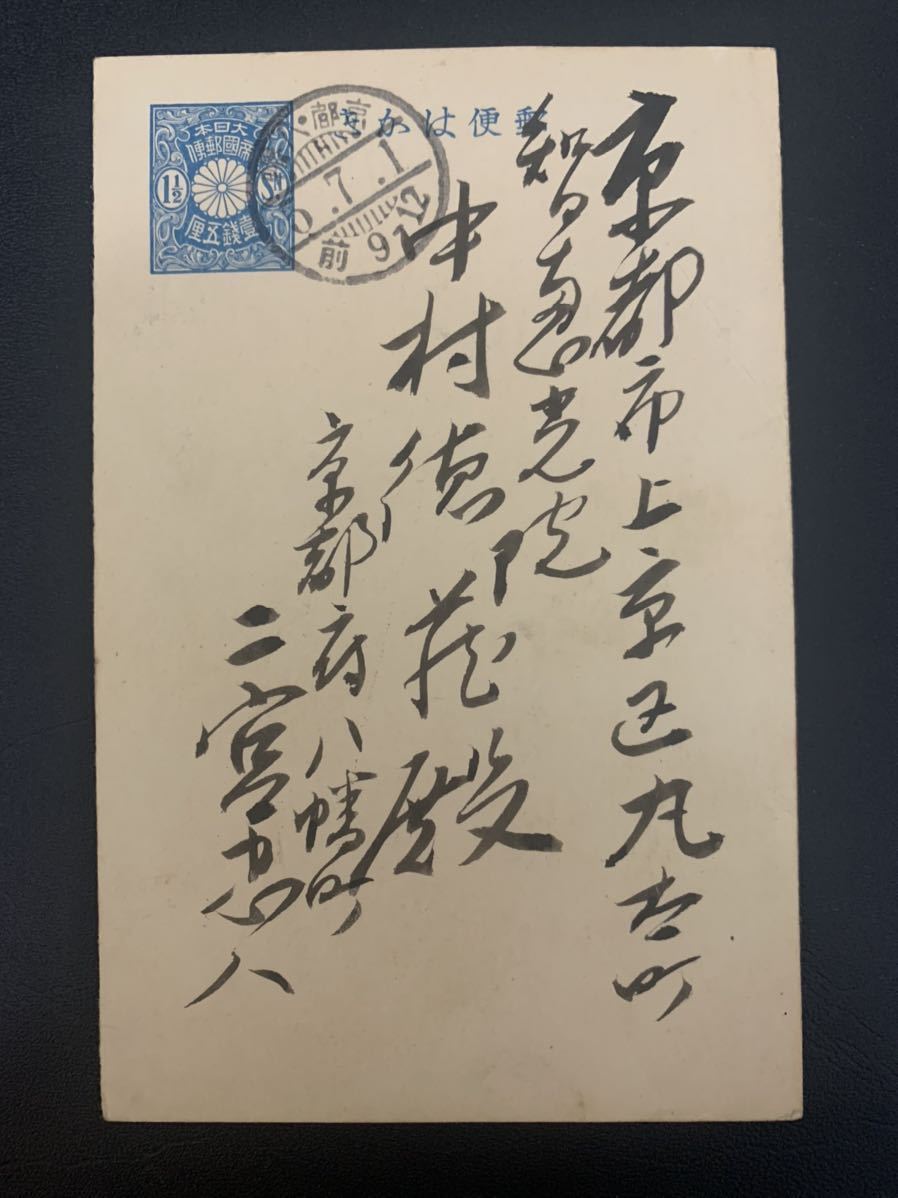 郵便はがき
大日本
帝國郵便
1½ Sn
壹錢五厘
京都・八
.7.1
前 9-12
京都市上京区丸太町
智恵光院
中村徳蔵殿
京都府八幡町
二宮忠八